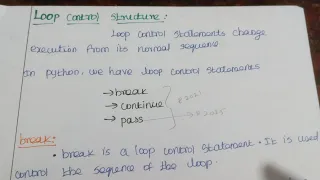 Loop Control Structure:
Loop control statements change
execution from its normal sequence
In python, we have loop control statements
→ break
→ continue
→ pass
break:
• break is a loop control statement. It is used
control the sequence of the loop.